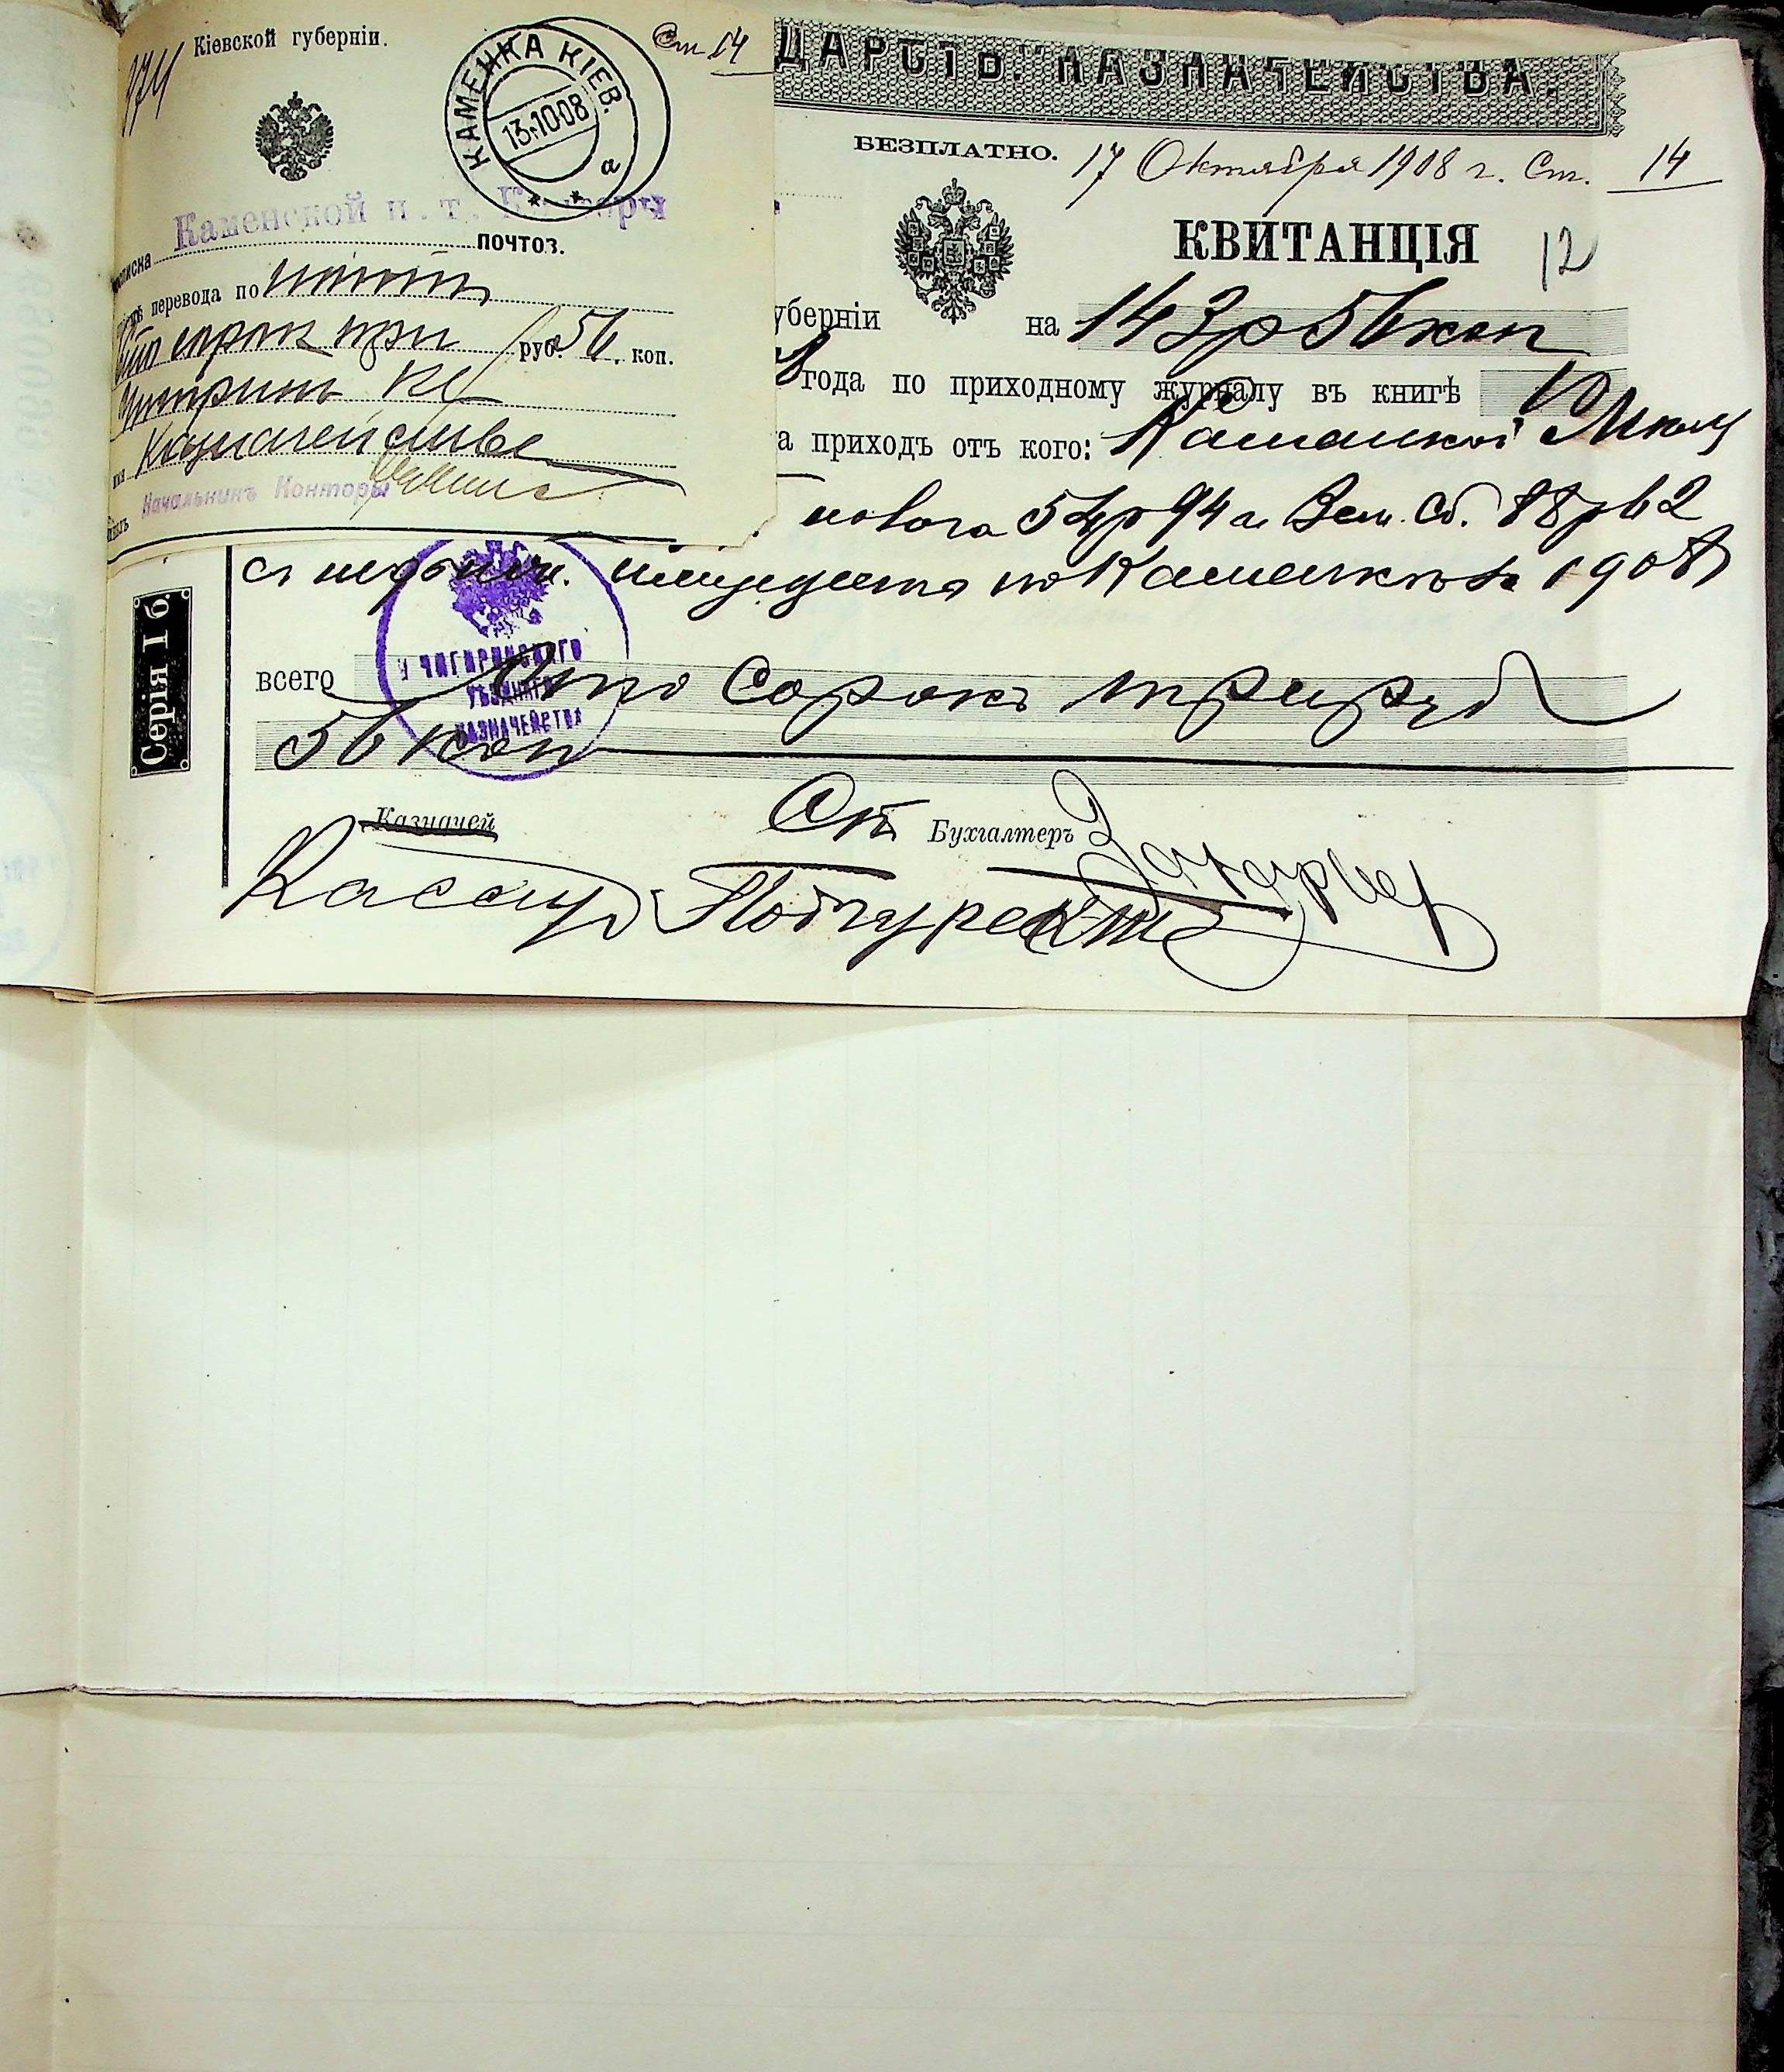 Кіевской губерніи.
КАМЕНКА КІЕВ.
13.10.08
а
Ст 14
Каменской п. т. Конторы
почтоз.
перевода по
сто сорок три руб. 56 коп.
Казначейство
Начальникъ Конторы
ДАРСТВ. КАЗНАЧЕЙСТВА.
БЕЗПЛАТНО. 17 Октября 1908 г. Ст. 14
КВИТАНЦІЯ 12
уберніи на 143 р 56 коп
8 года по приходному журналу въ книгѣ
а приходъ отъ кого: Каменской
54 р 94 Зем. Сб. 88 р 62
с недвиж. имущества по Каменкѣ за 1908
Серія I б.
ЧИГИРИНСКАГО УѢЗДНАГО КАЗНАЧЕЙСТВА
всего Сто Сорокъ три руб
56 коп
Казначей Ст. Бухгалтеръ
Кассиръ